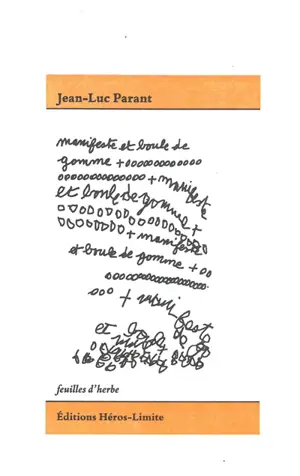 Jean-Luc Parant
manifeste et boule de
gomme +ooooooooooooo
ooooooooooooo + manifeste
et boule de gomme +
ooooooooooooooo
ooooooo + manifeste
et boule de gomme + oo
ooooooooooooooo
ooo +
et
feuilles d'herbe
Éditions Héros-Limite